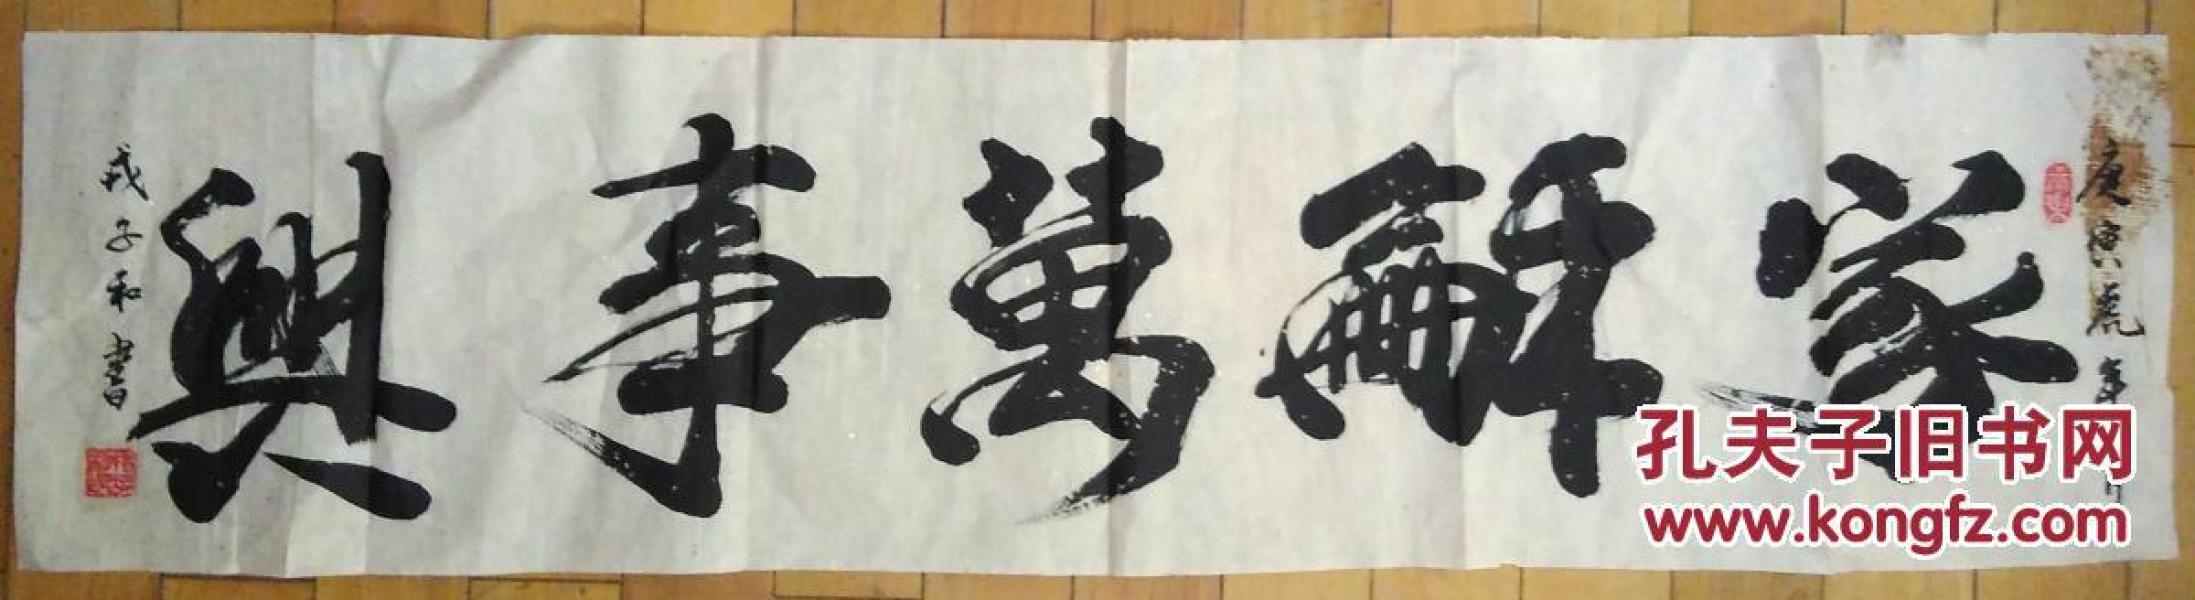 庚寅虎年
家龢萬事興
戎子和書
孔夫子旧书网
www.kongfz.com